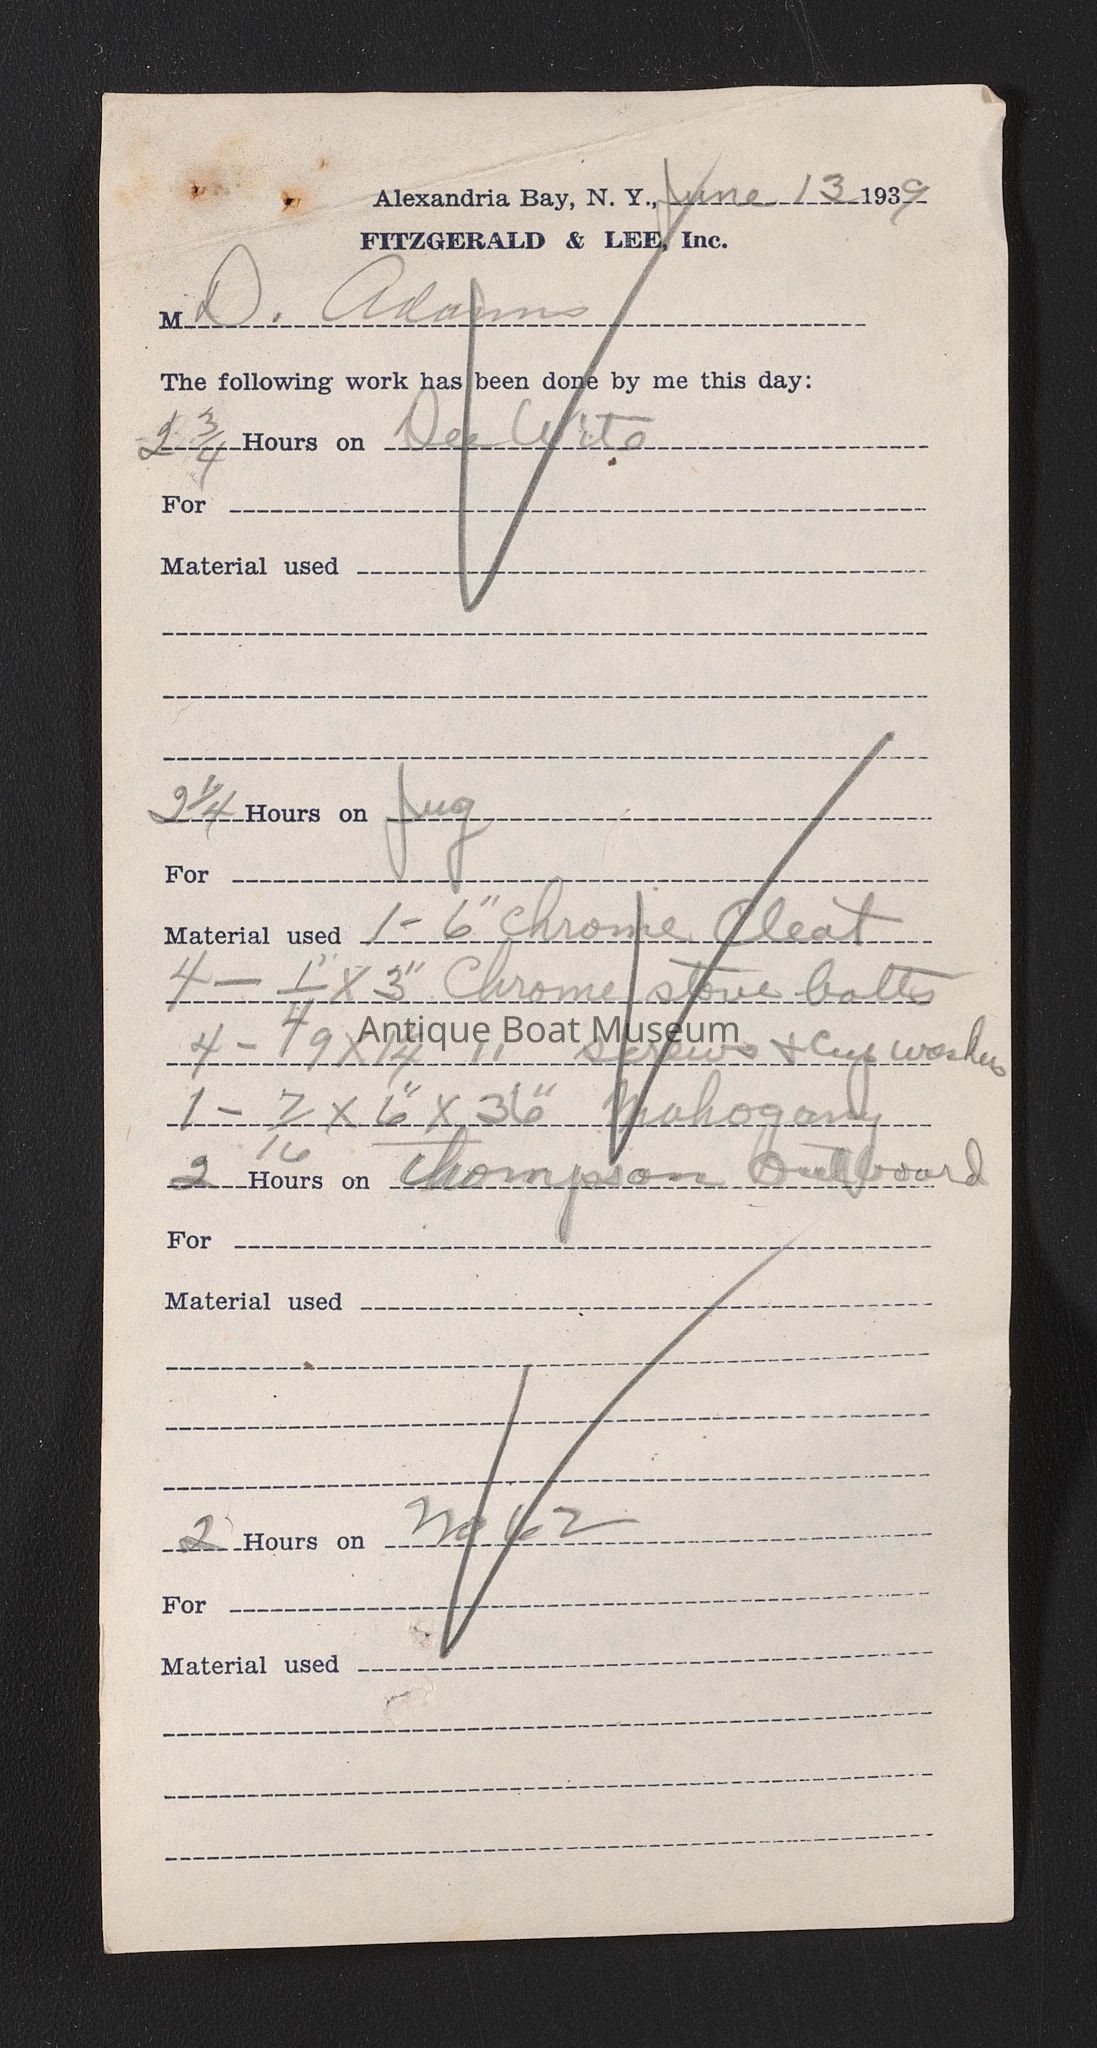 Alexandria Bay, N. Y., June 13 1939
FITZGERALD & LEE, Inc.
M D. Adams
The following work has been done by me this day:
2 3/4 Hours on Dee Wite
For
Material used
2 1/4 Hours on Jug
For
Material used 1 - 6" Chrome Cleat
4 - 1/4" X 3" Chrome stove bolts
Antique Boat Museum
4 - 9 X 1 1/4 " screws + Cup washers
1 - 7/16 X 6" X 36" Mahogany
2 Hours on Thompson Outboard
For
Material used
2 Hours on No 62
For
Material used